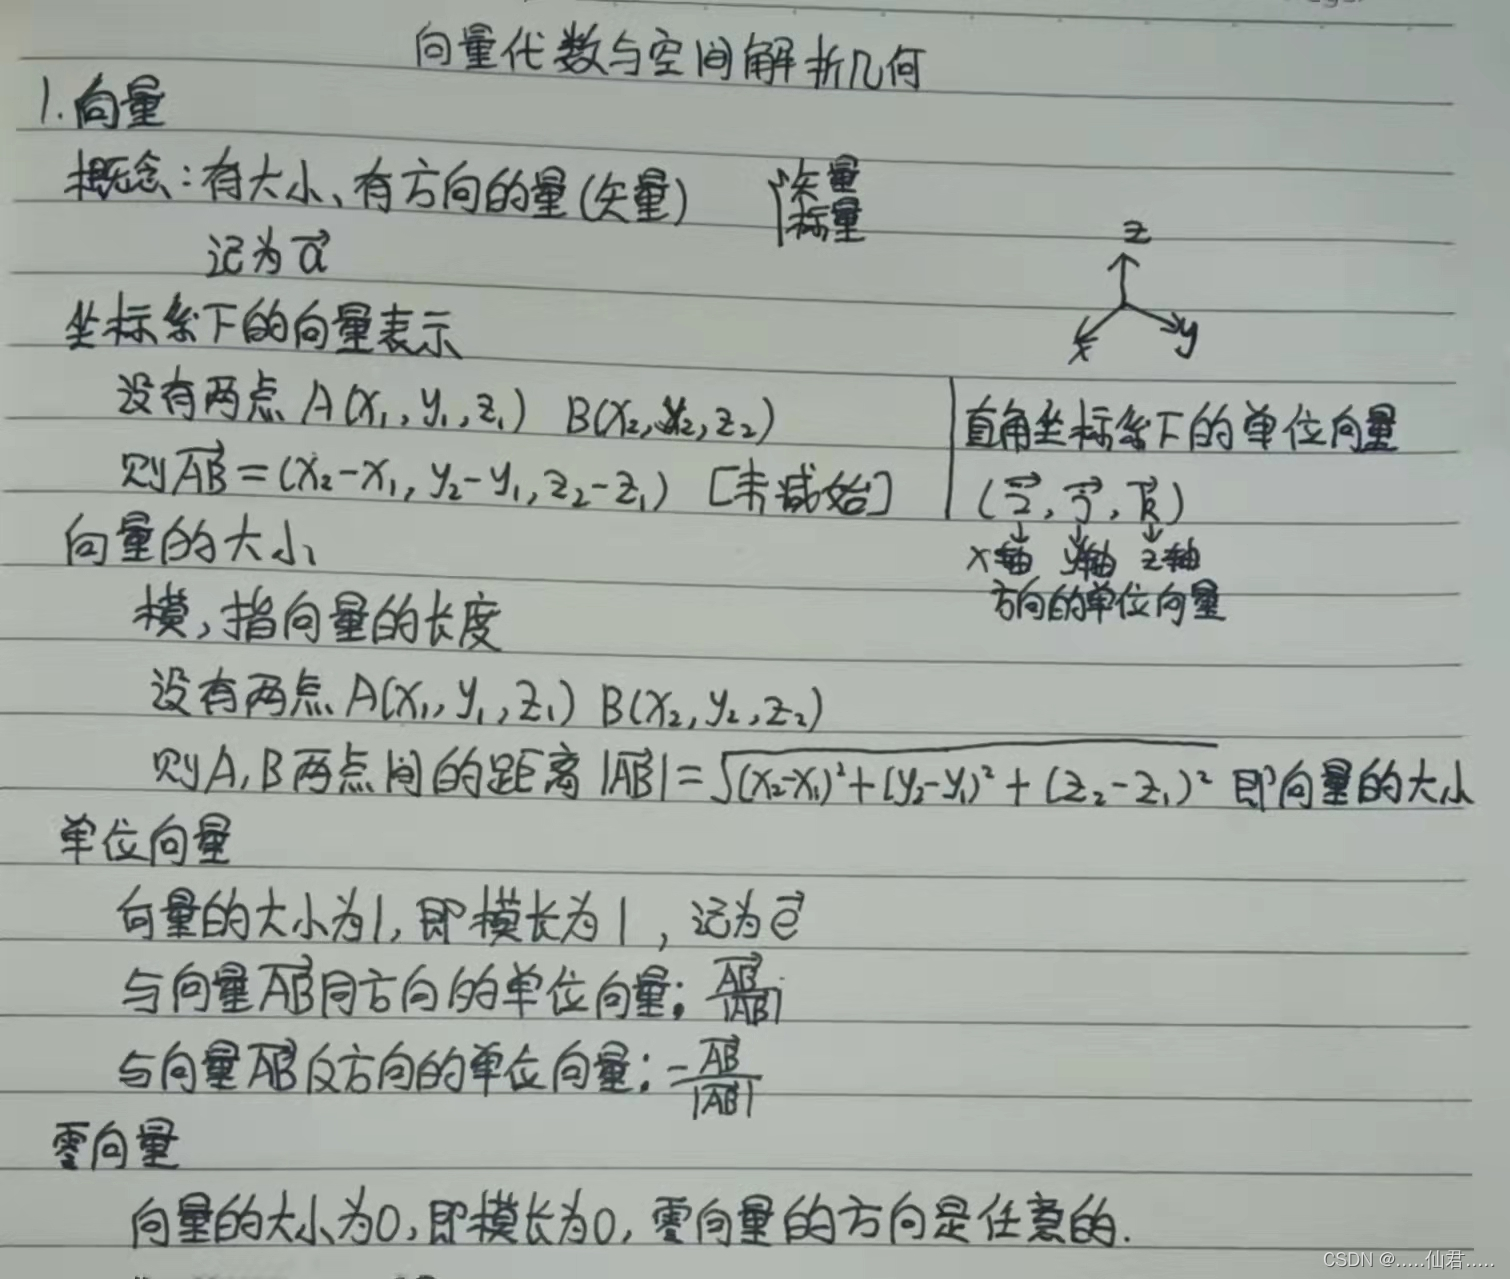 向量代数与空间解析几何
1.向量
概念:有大小、有方向的量(矢量)
矢量
标量
记为 \vec{a}
z
x
y
坐标系下的向量表示
设有两点 A(x₁, y₁, z₁) B(x₂, y₂, z₂)
则 \vec{AB} = (x₂-x₁, y₂-y₁, z₂-z₁) [末减始]
直角坐标系下的单位向量
(\vec{i}, \vec{j}, \vec{k})
↓ ↓ ↓
x轴 y轴 z轴
方向的单位向量
向量的大小
模,指向量的长度
设有两点 A(x₁, y₁, z₁) B(x₂, y₂, z₂)
则A,B两点间的距离 |\vec{AB}| = √((x₂-x₁)²+(y₂-y₁)²+(z₂-z₁)²) 即向量的大小
单位向量
向量的大小为1,即模长为1,记为 \vec{e}
与向量\vec{AB}同方向的单位向量: \vec{AB}/|\vec{AB}|
与向量\vec{AB}反方向的单位向量: -\vec{AB}/|\vec{AB}|
零向量
向量的大小为0,即模长为0,零向量的方向是任意的.
CSDN @.....仙君.....